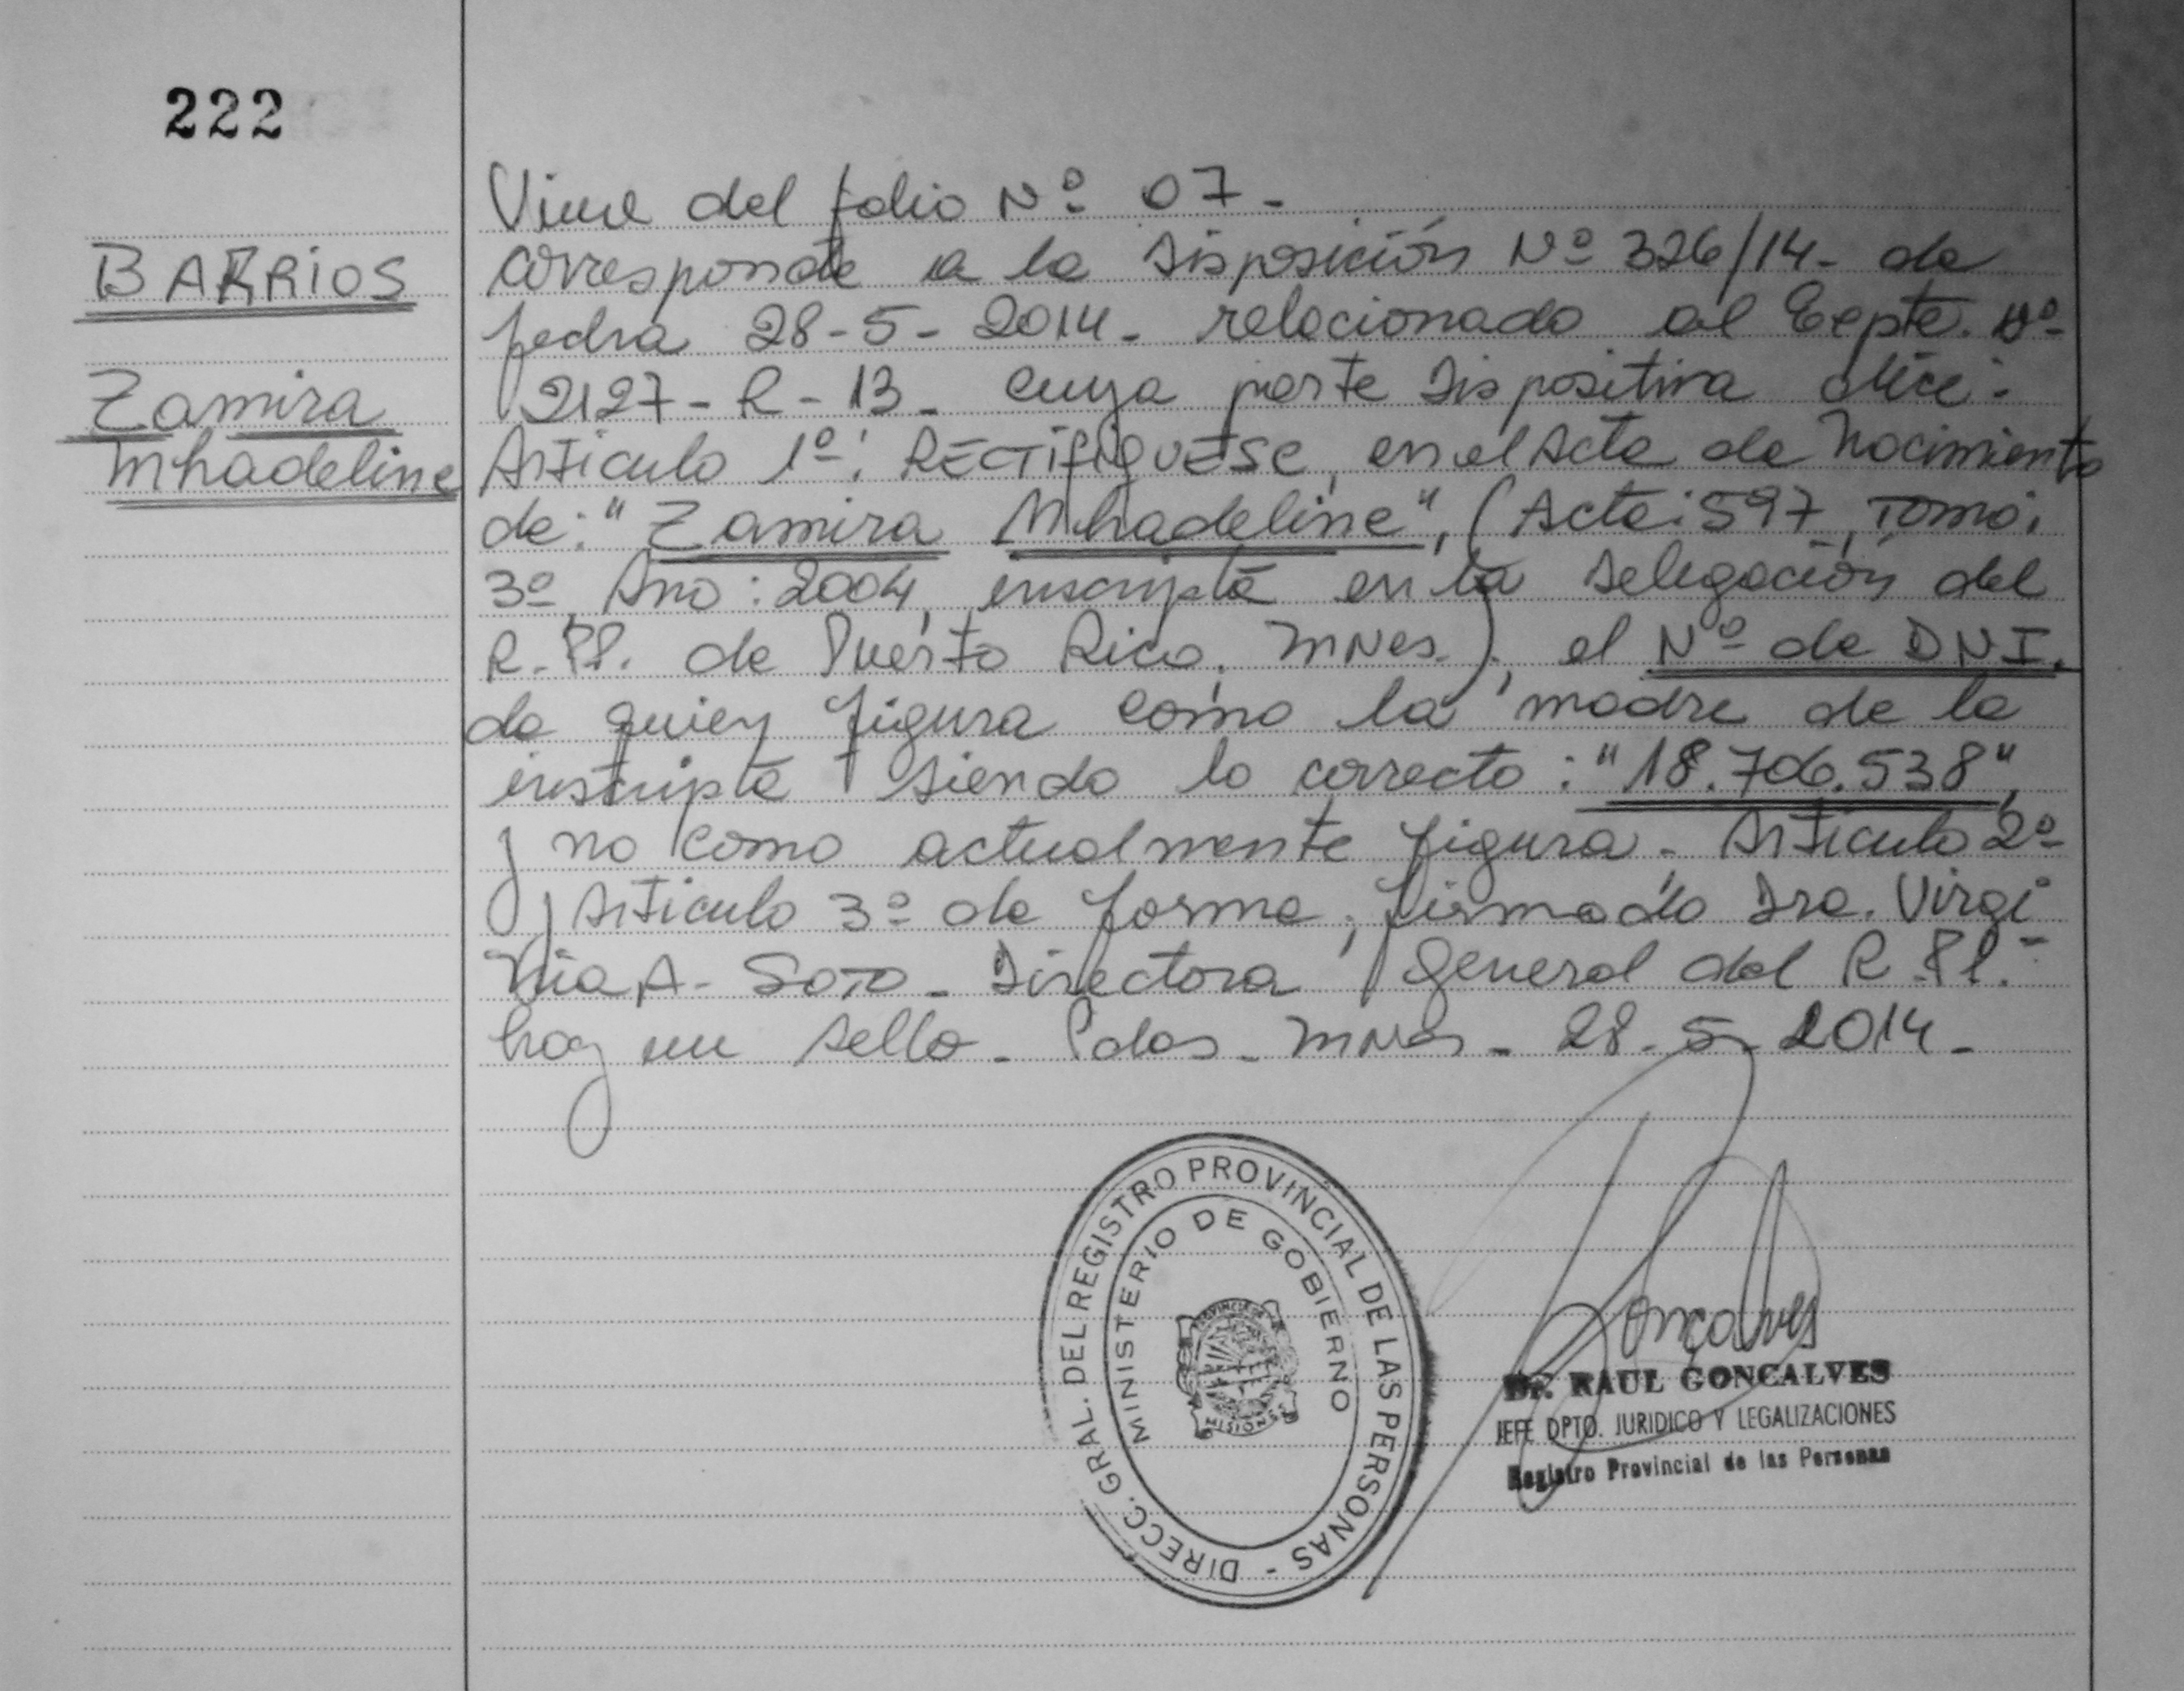 222
BARRIOS
Zamira
Mhadeline
Viene del folio Nº 07-
corresponde a la Disposición Nº 326/14- de
fecha 28-5-2014- relacionado al Expte. Nº
2127-R-13- cuya parte Dispositiva dice:
Articulo 1º: RECTIFIQUESE, en el Acta de Nacimiento
de: "Zamira Mhadeline", (Acta: 597, Tomo:
3º, Año: 2004, inscripta en la Delegación del
R.PP. de Puerto Rico, Mnes.), el Nº de DNI.
de quien figura como la madre de la
inscripta siendo lo correcto: "18.706.538",
y no como actualmente figura. Articulo 2º
y Articulo 3º de forma, firmado Dra. Virgi
nia A. Soto - Directora General del R.PP.-
hay un sello - Pdas - Mnes - 28-5-2014-
DIRECC. GRAL. DEL REGISTRO PROVINCIAL DE LAS PERSONAS -
MINISTERIO DE GOBIERNO
PROVINCIA DE
MISIONES
Goncalves
Dr. RAUL GONCALVES
JEFE DPTO. JURIDICO Y LEGALIZACIONES
Registro Provincial de las Personas